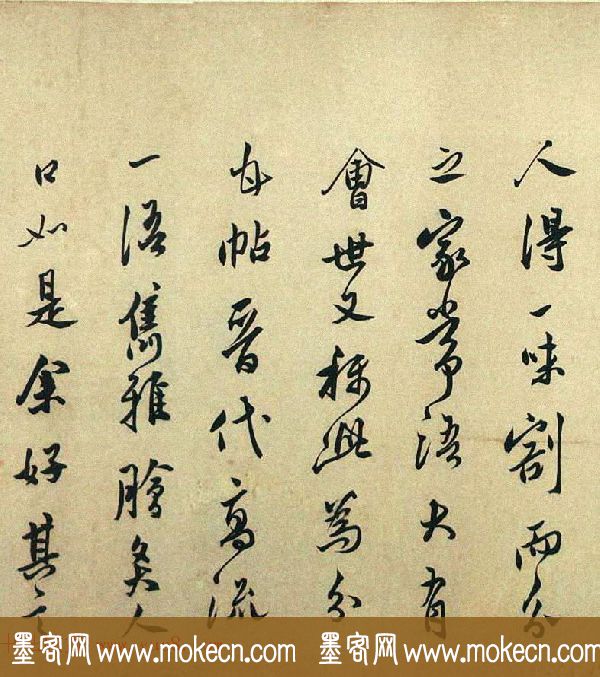 人得一味割而分
之家常語大有
會世又稱此為分
甘帖晉代高流
一語雋雅膾炙人
口如是余好其
墨客网 www.mokecn.com 墨客网 www.mokecn.com